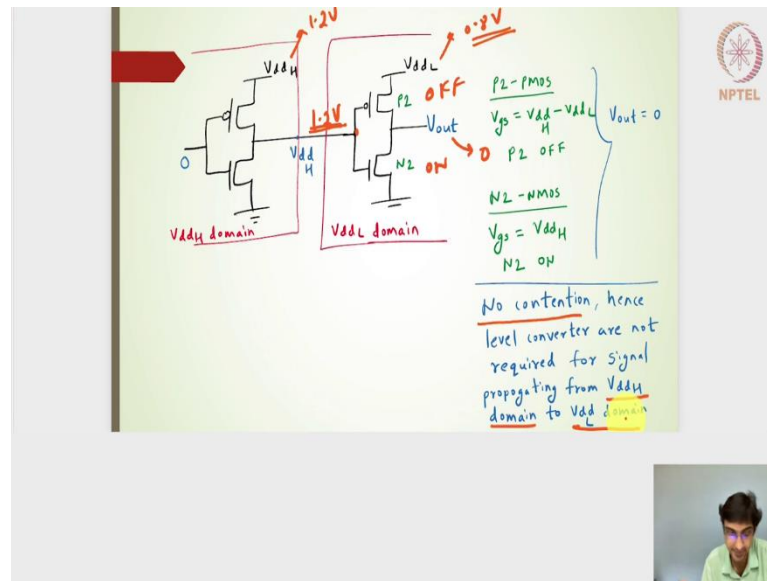 1.2V
0.8V
VddH
VddL
P2 OFF
1.2V
Vout
0
Vdd
H
0
N2 ON
VddH domain
VddL domain
P2-PMOS
Vgs = VddH - VddL
P2 OFF
N2-NMOS
Vgs = VddH
N2 ON
Vout = 0
No contention, hence
level converter are not
required for signal
propogating from VddH
domain to VddL domain
NPTEL